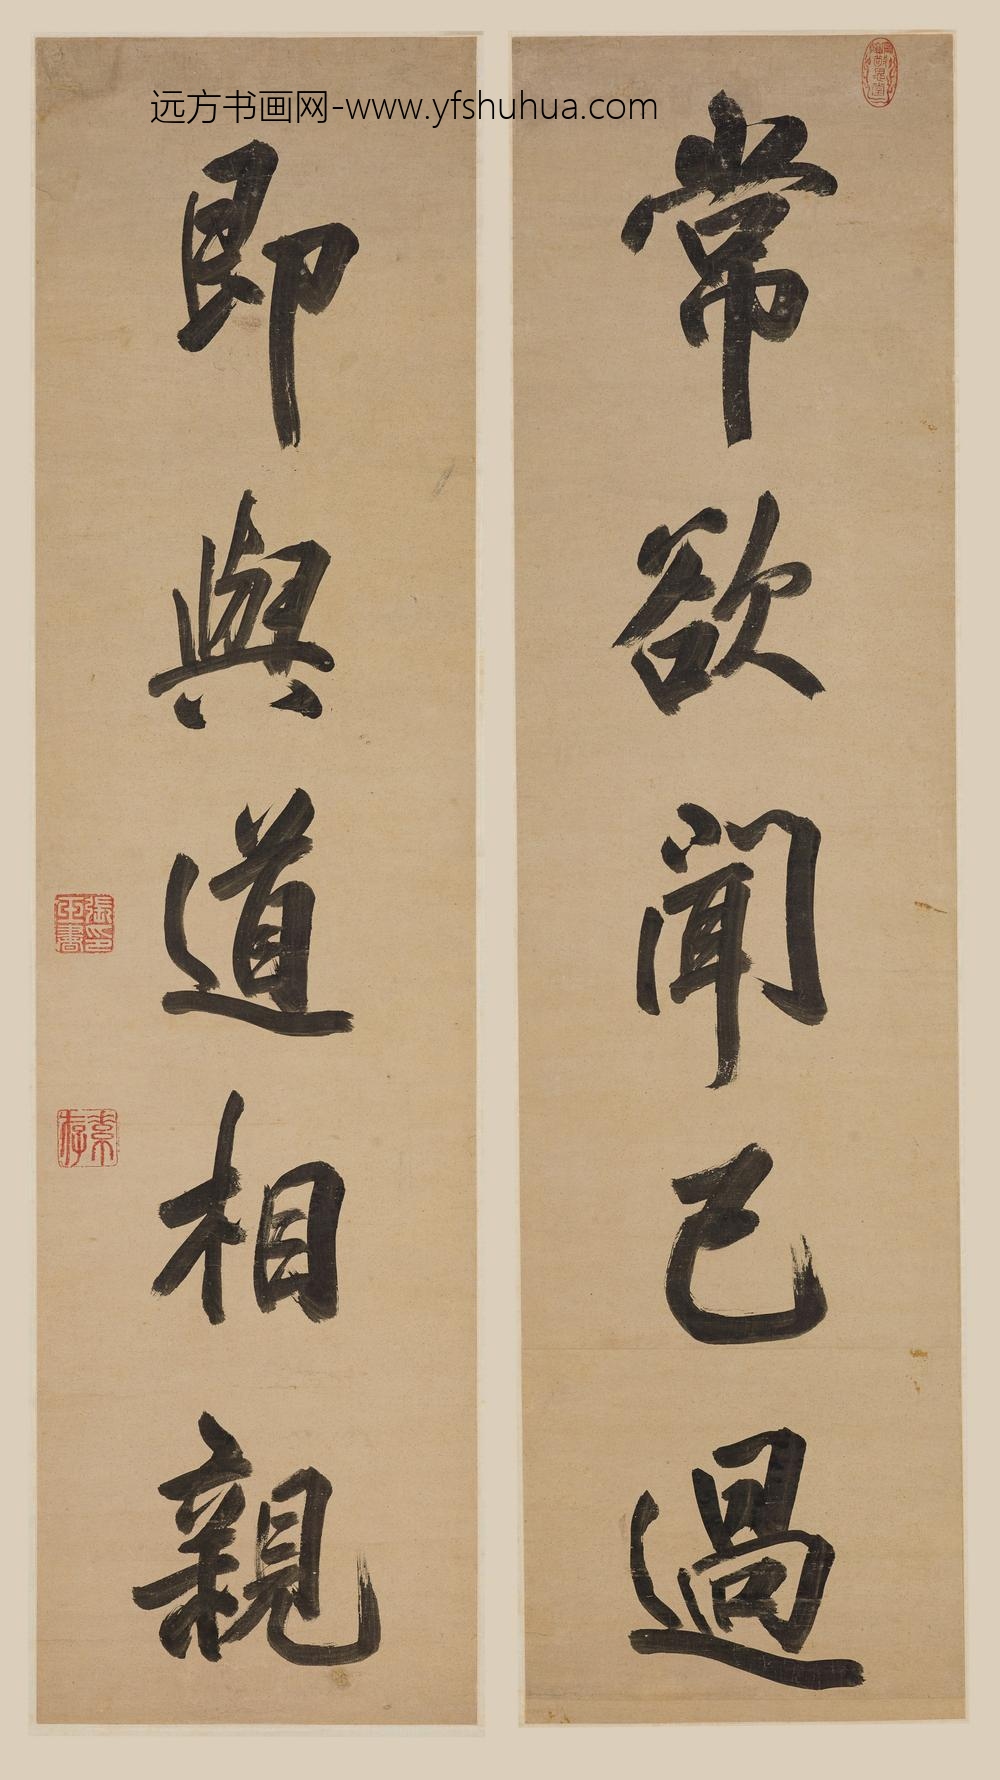 远方书画网-www.yfshuhua.com
常欲聞己過
即與道相親
張玉書印
素存